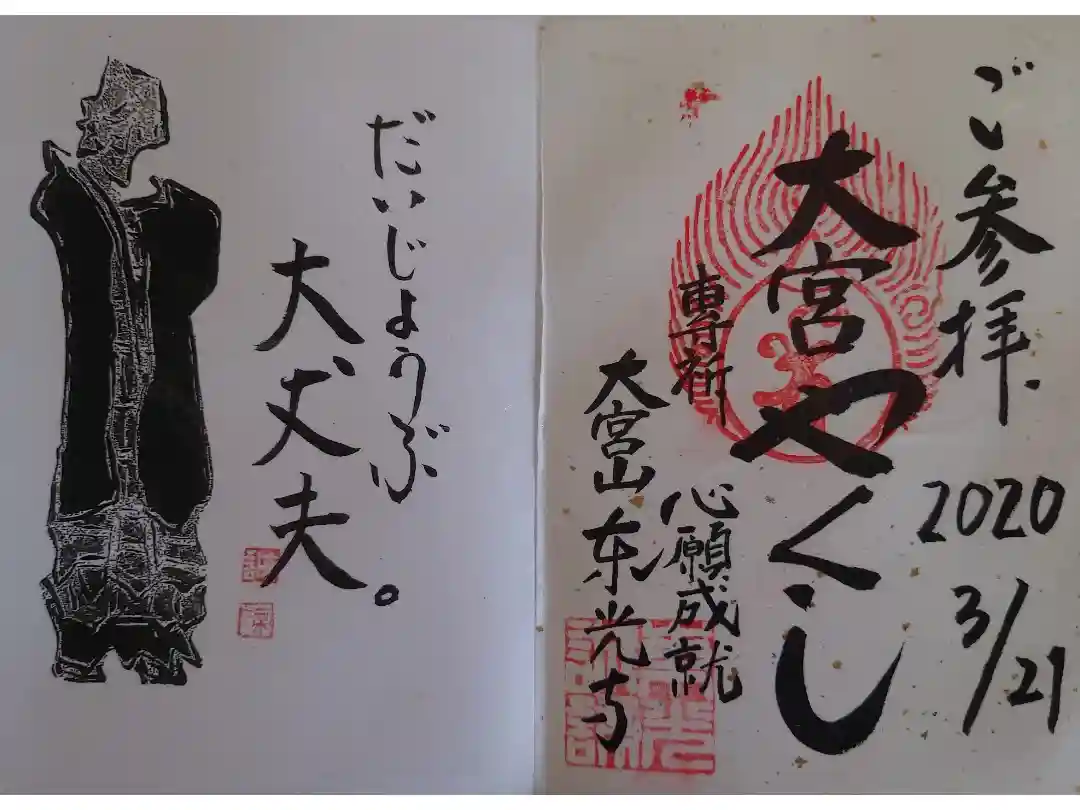 ご参拝
2020
3/21
大宮やくし
専祈
心願成就
大宮山东光寺
だいじょうぶ
大丈夫。